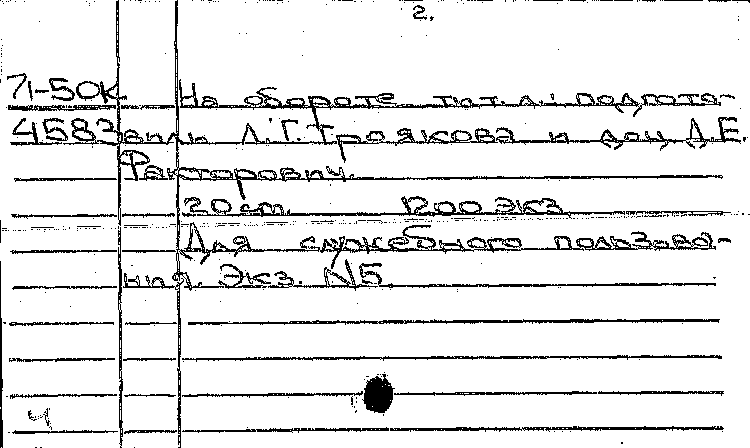 2.
71-50К На обороте тит. л.: подготя-
4583 вили Л.Г. Троякова и доц Д.Е.
Факторович.
20 ст. 1200 экз
Для служебного пользова-
ния. Экз. №5.
4